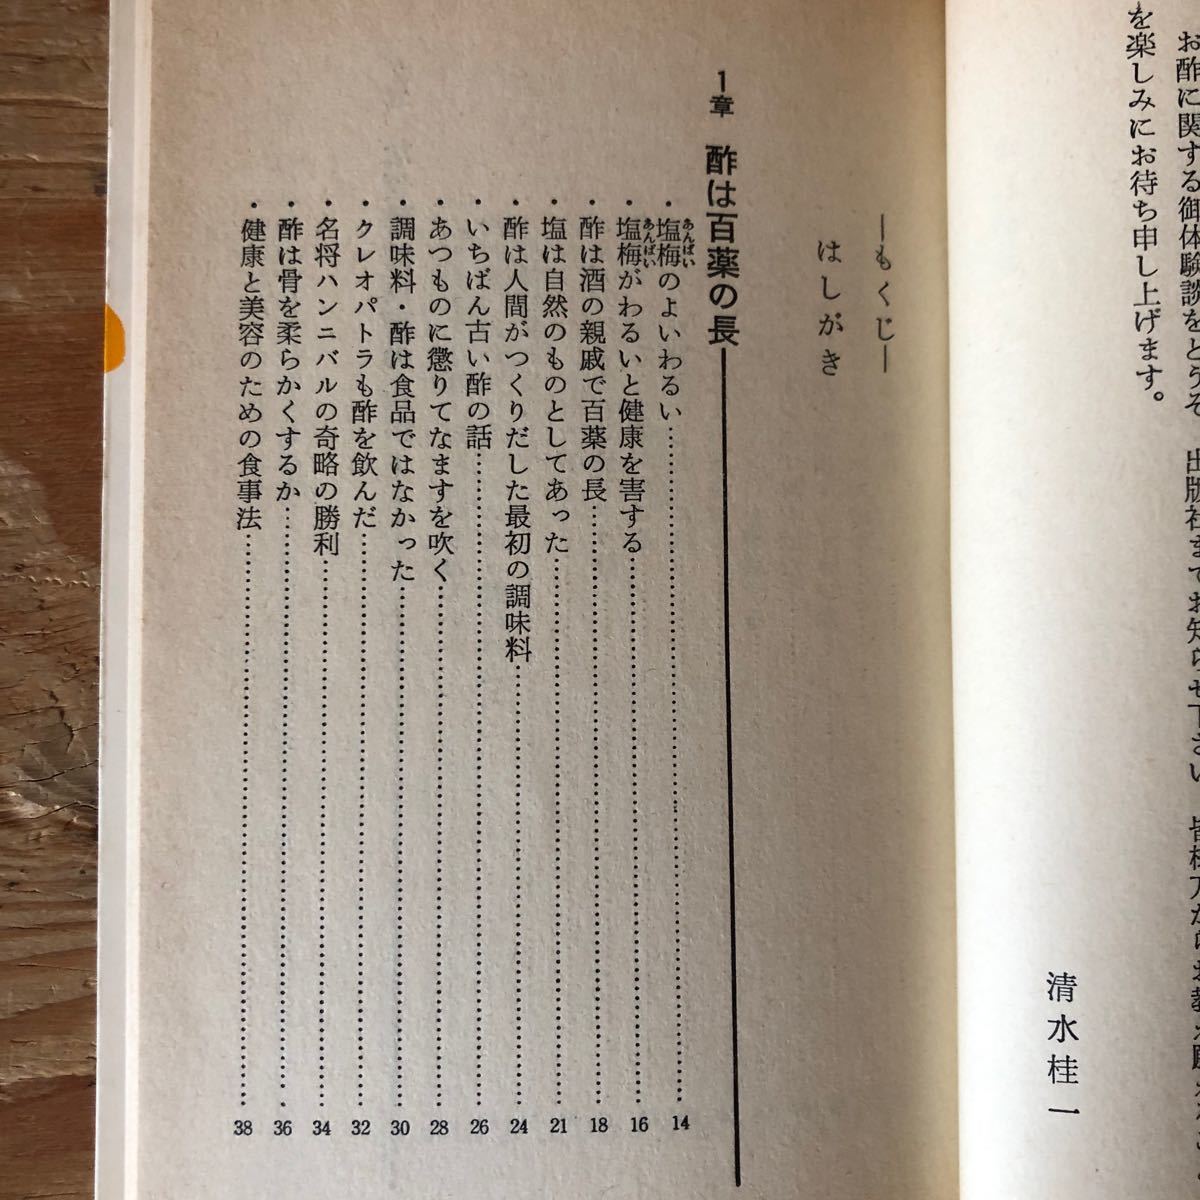 お酢に関する御体験談をどうぞ 出版社までお知らせ下さい 皆様方からお教え願
を楽しみにお待ち申し上げます。
清水桂一
―もくじ―
はしがき
1章 酢は百薬の長
・塩梅のよいわるい……14
あんばい
・塩梅がわるいと健康を害する……16
あんばい
・酢は酒の親戚で百薬の長……18
・塩は自然のものとしてあった……21
・酢は人間がつくりだした最初の調味料……24
・いちばん古い酢の話……26
・あつものに懲りてなますを吹く……28
・調味料・酢は食品ではなかった……30
・クレオパトラも酢を飲んだ……32
・名将ハンニバルの奇略の勝利……34
・酢は骨を柔らかくするか……36
・健康と美容のための食事法……38